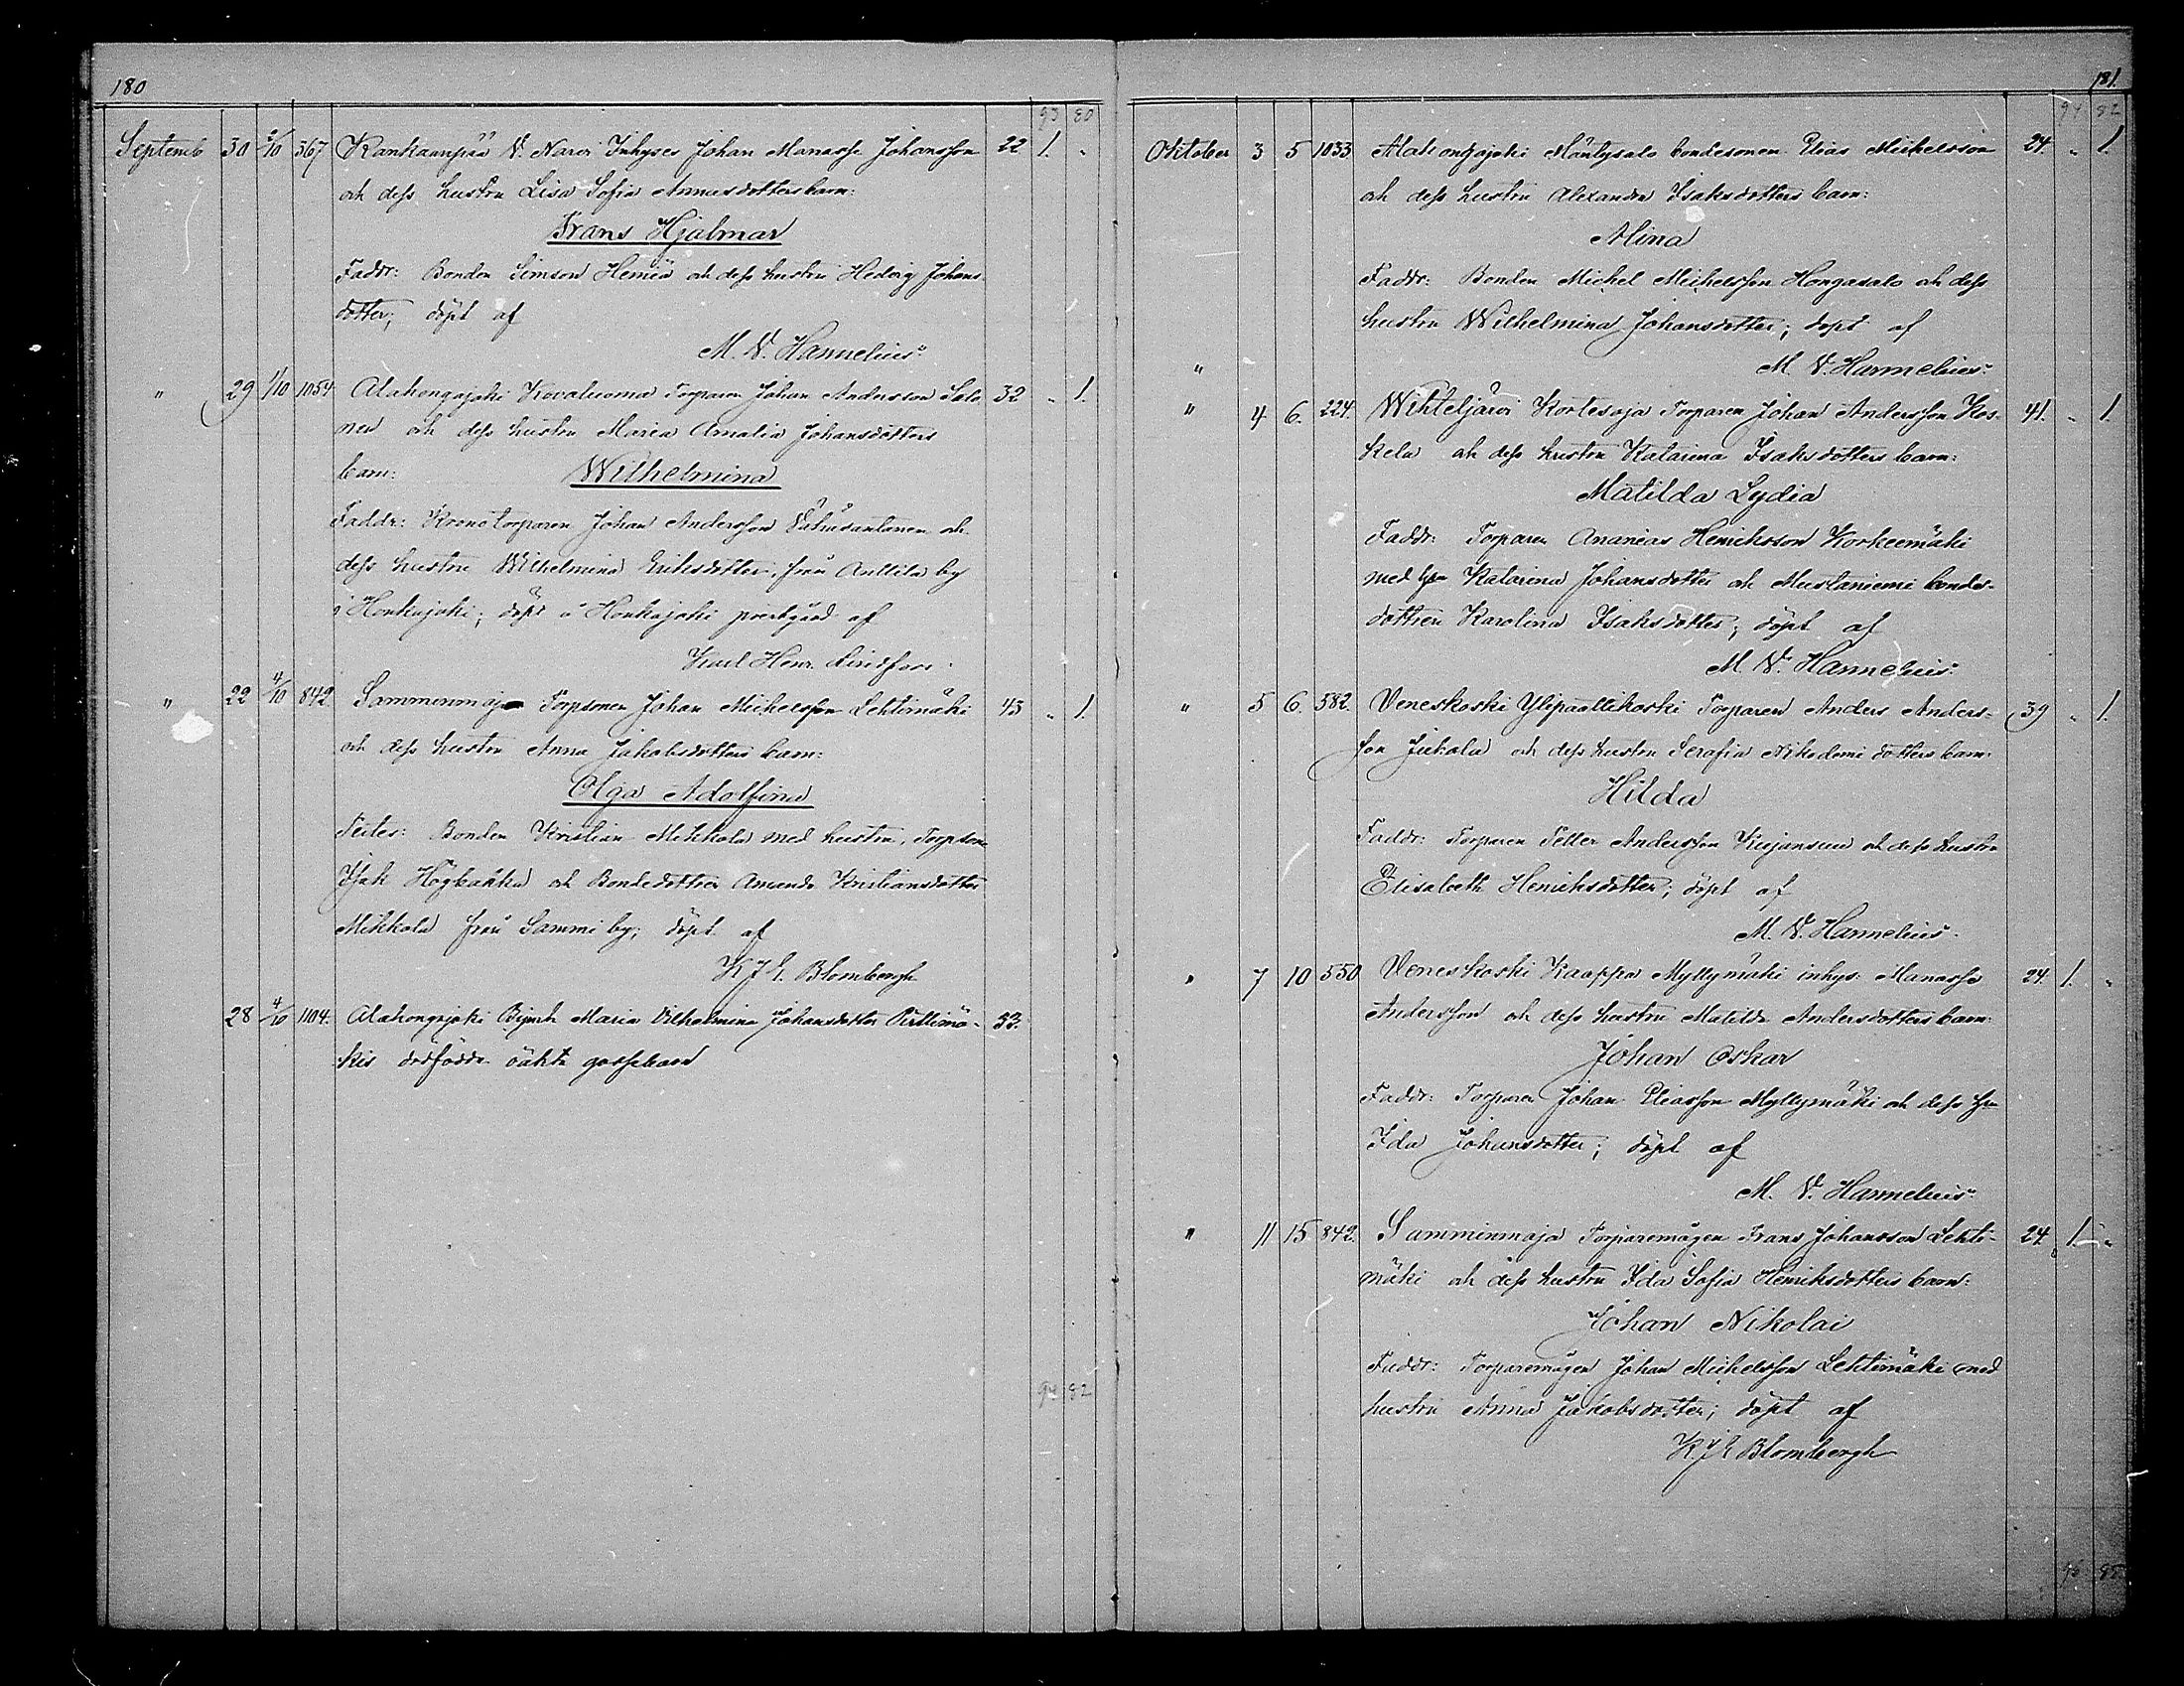 180
93 80
Septemb 30 2/10 367 Kankaanpää V. Narvi Inhyses Johan Manasse Johansson 22 1. "
och dess hustru Lisa Sofia Annasdotters barn:
Frans Hjalmar
Faddr: Bonden Simson Hemiä och dess hustru Hedvig Johans-
dotter; döpt af
M. V. Hannelius.
" 29 1/10 1054 Alahongajoki Kovaluoma Torparen Johan Andersson Salo 32 " 1.
nen och dess hustru Maria Amalia Johansdotters
barn: Wilhelmina
Faddr: Kronotorparen Johan Andersson och
dess hustru Wilhelmina Eriksdotter, från Anttila by
i Honkajoki; döpt i Honkajoki prestgård af
Karl Henr. Lindfors.
" 22 4/10 842 Samminmaja Torpsonen Johan Michelsson Lehtimäki 43 " 1.
och dess hustru Anna Jakobsdotters barn:
Olga Adolfina
Testes: Bonden Kristian Mikkola med hustru, Torpson
Isak Högbacka och Bondedottren Amanda Kristiansdotter
Mikkola från Sammi by; döpt af
K J E Blombergh
28 4/10 1104. Alahongajoki Maria Vilhelmina Johansdotter Pirttimä- 53.
kis dödfödde oäkta gossebarn
94 82
181.
94 82
Oktober 3 5 1033 Alahongajoki Mäntysalo bondesonen Elias Michelsson 24. " 1.
och dess hustru Alexandra Isaksdotters barn:
Alina
Faddr: Bonden Michel Michelsson Hongasalo och dess
hustru Wilhelmina Johansdotter; döpt af
" M. V. Hannelius.
" 4. 6. 224. Wihteljärvi Kortesoja Torparen Johan Andersson Kos- 41. " 1.
kela och dess hustru Katarina Isaksdotters barn:
Matilda Lydia
Faddr: Torparen Ananias Henriksson Korkeemäki
med hu Katarina Johansdotter och Mustaniemi bonde-
dottren Karolina Isaksdotter; döpt af
M. V. Hannelius.
" 5 6. 582. Veneskoski Ylipaattikoski Torparen Anders Anders- 39 " 1.
son Jukola och dess hustru Serafia Nikodemi dotters barn:
Hilda
Faddr: Torparen Petter Andersson Kujansuu och dess hustru
Elisabeth Henriksdotter; döpt af
M. V. Hannelius.
" 7 10 550 Veneskoski Kaappa Myllymäki inhys: Manasse 24. 1. "
Andersson och dess hustru Matilda Andersdotters barn:
Johan Oskar
Faddr: Torparen Johan Eliasson Myllymäki och dess hu
Ida Johansdotter; döpt af
M. V. Hannelius.
" 11 15 842. Samminmaja Torparemågen Frans Johansson Lehti- 24. 1. "
mäki och dess hustru Ida Sofia Henriksdotters barn:
Johan Nikolai
Faddr: Torparemågen Johan Michelsson Lehtimäki med
hustru Anna Jakobsdotter; döpt af
K. J E Blombergh
95 85